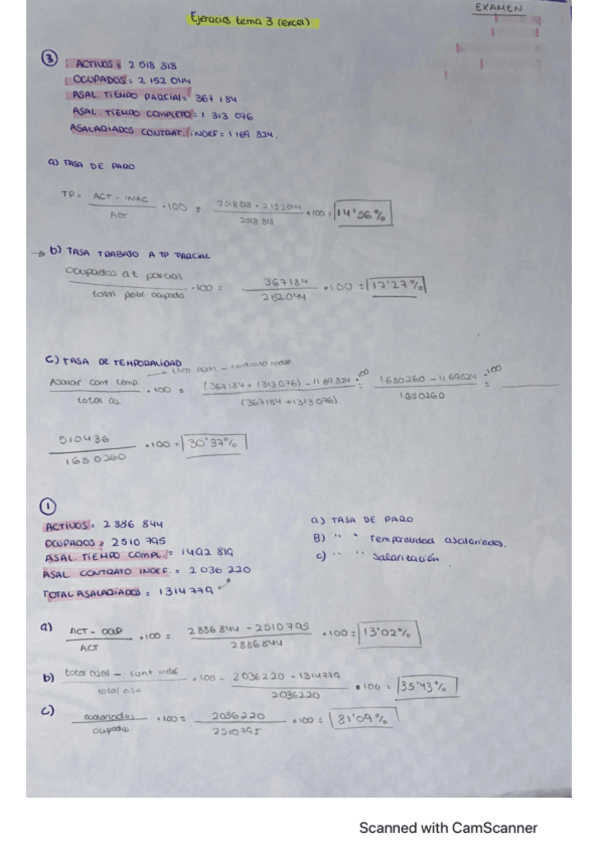 EXAMEN
Ejercicios tema 3 (excel)
③ ACTIVOS: 2 518 818
OCUPADOS: 2 152 044
ASAL. TIEMPO PARCIAL: 367 184
ASAL. TIEMPO COMPLETO: 1 313 076
ASALARIADOS CONTRAT. INDEF: 1 169 824.
a) TASA DE PARO
TP = ACT - INAC / ACT · 100 = 2518818 - 2152044 / 2518 818 · 100 = 14'56%
b) TASA TRABAJO A TP PARCIAL
Ocupados a t. parcial / total pobl. ocupada · 100 = 367184 / 2152044 · 100 = 17'27%
C) TASA DE TEMPORALIDAD
total asal - contrato indef
Asalar cont temp. / total as. · 100 = (367 184 + 1313 076) - 1169824 / (367184 + 1313 076) · 100 = 1680260 - 1169824 / 1680260 · 100 =
510436 / 1680260 · 100 = 30'37%
①
ACTIVOS: 2 886 844
OCUPADOS: 2510 795
ASAL. TIEMPO COMPL.: 1492 819
ASAL CONTRATO INDEF. = 2 036 220
TOTAL ASALARIADOS = 1314 779
a) TASA DE PARO
B) " " Temporalidad asalariados.
c) " " Salarización
a) ACT - OCUP / ACT · 100 = 2 886 844 - 2510795 / 2886844 · 100 = 13'02%
b) total asal - cont indef / total asa · 100 = 2036220 - 1314779 / 2036220 · 100 = 35'43%
C) asalariados / ocupados · 100 = 2036220 / 2510795 · 100 = 81'09%
Scanned with CamScanner